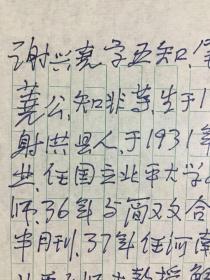 谢兴堯字五知,
蕘公,知非等,生于1
射洪县人,于1931年
业,任国立北平大学
师,36年与简又文合
半月刊,37年任河南